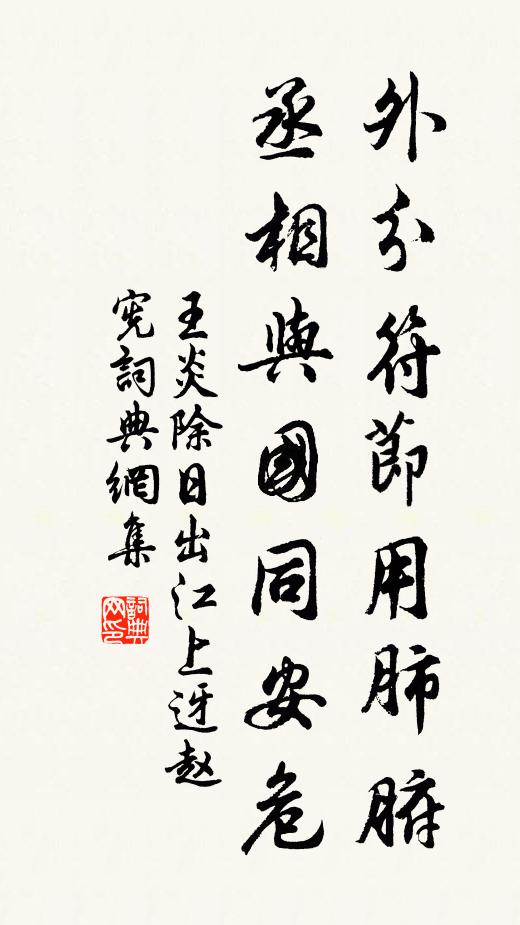 外分符節用肺腑
丞相與國同安危
王炎除日出江上迓赵
宪詞典網集
詞典
网印